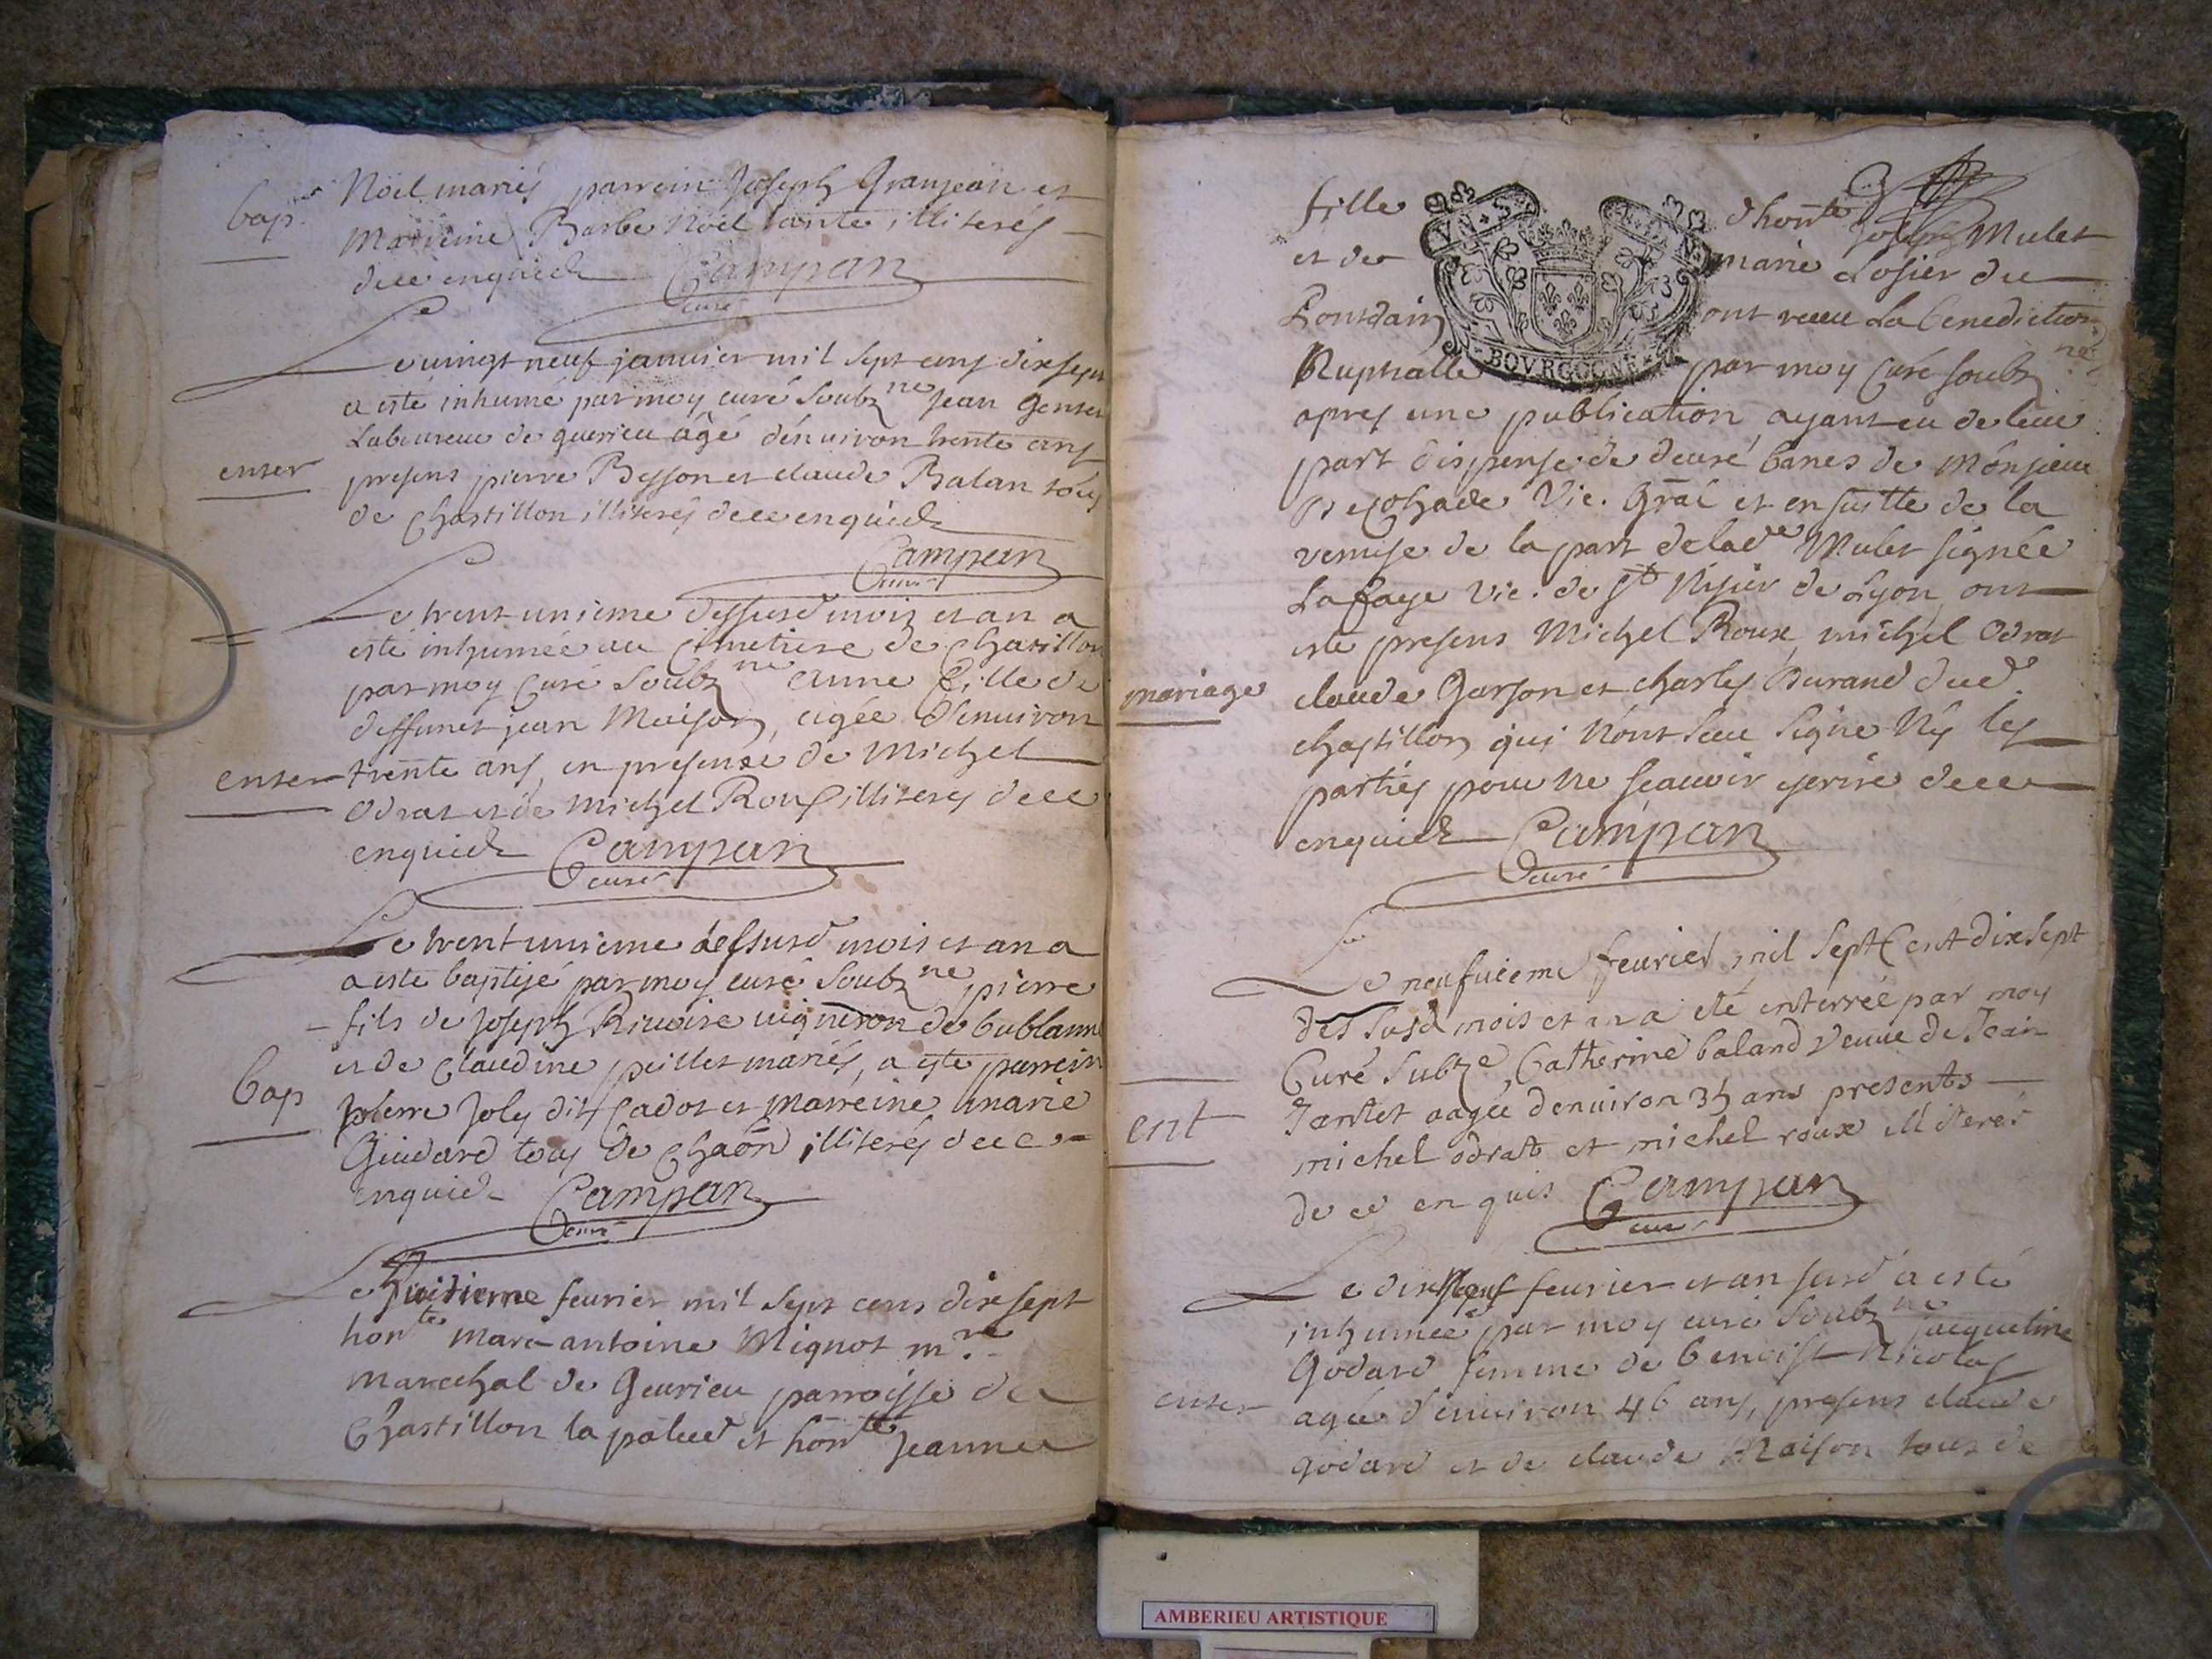 bap.
Noël mariés parrein Joseph Granjean et
Marreine Barbe Noël tante, illiterés
dece enquich Campan
curé
Le vingt neuf janvier mil sept cens dix sept
a esté inhumé par moy curé Soubz ne Jean
Laboureur de âgé d'enuiron trente ans
enter
presens pierre Besson et claude Balan tous
de Chastillon illiterés dece enquich
Campan
curé
Le trent unieme dessusd mois et an a
esté inhumée au Cimetiere de Chastillon
par moy Curé Soubz ne Anne fille de
deffunct jean Maison, agée d'enuiron
enter
trente ans, en presense de Michel
Odrat et de Michel Roux illiteres dece
enquich Campan
curé
Le trent unieme dessusd mois et an a
a esté baptisé par moy curé Soubz ne pierre
fils de Joseph Riuoire uigneron de bublanne
et de Claudine peillet mariés, a esté parrein
bap
pierre Joly dit Cadot et Marreine marie
Guidard tous de Chaōn illiterés dece
enquich Campan
curé
Le huitieme feurier mil sept cens dix sept
honte Marc antoine Mignot mre
marechal de Geurieu parroisse de
Chastillon la palud et honte Jeanne
fille d'honte Joseph Mulet
et de marie Losier du
ont receu La benediction
Nuptialle par moy Curé soubz ne
apres une publication ayant eu de leur
part dispense de deux bancs de Monsieur
Vic. Gral et ensuitte de la
remise de la part de lade Mulet signée
Lafaye Vic. de St Nisier de Lyon, ont
esté presens Michel Roux, michel Odrat
mariage
claude Garson et charles Durand dud.
chastillon qui n'ont sceu signe Ny les
parties pour ne sçauoir ecrire dece
enquich Campan
curé
Le neufuieme feurier mil sept Cent dix sept
des susd mois et an a eté enterrée par moy
Curé Subze, Catherine baland veuue de Jean
ent
Jantet aagée denuiron 35 ans presents
michel odrat et michel roux illiterés
de ce enquis Campan
curé
Le dix feurier et an susd a esté
inhumée par moy curé Soubz ne jacqueline
Godard femme de benoist Nicolas
enter
agée d'enuiron 46 ans, presens claude
godard et de claude Maison tous de
BOVRGOGNE
AMBERIEU ARTISTIQUE